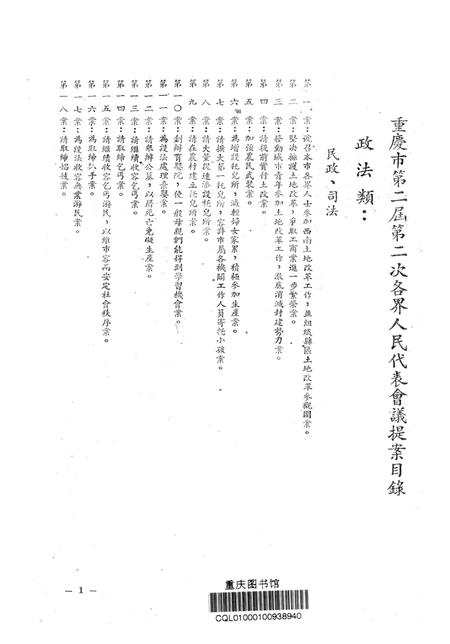 重慶市第二屆第二次各界人民代表會議提案目錄
政法類：
民政、司法
第一案：號召本市各界人士參加西南土地改革工作，並組織縣區土地改革參觀團案。
第二案：堅決擁護土地改革，爭取工商業進一步繁榮案。
第三案：發動城市青年參加土地改革工作，澈底消滅封建勢力案。
第四案：請提前實行土改案。
第五案：加強農民武裝案。
第六案：為增設托兒所，減輕婦女家累，積極參加生產案。
第七案：請擴大第一托兒所，容許市屬各機關工作人員寄托小孩案。
第八案：請大量投速添設托兒所案。
第九案：請在農村建立托兒所案。
第一〇案：創辦育嬰院，使一般母親們能得到學習機會案。
第一一案：為設法處理棄嬰案。
第一二案：請興辦公墓，以將死亡免礙生產案。
第一三案：請繼續收容乞丐案。
第一四案：請取締乞丐案。
第一五案：請繼續收容乞丐游民，以維市容而安定社會秩序案。
第一六案：為取締扒手案。
第一七案：為設法收容無業游民案。
第一八案：請取締娼妓案。
— 1 —
重庆图书馆
CQL01000100938940